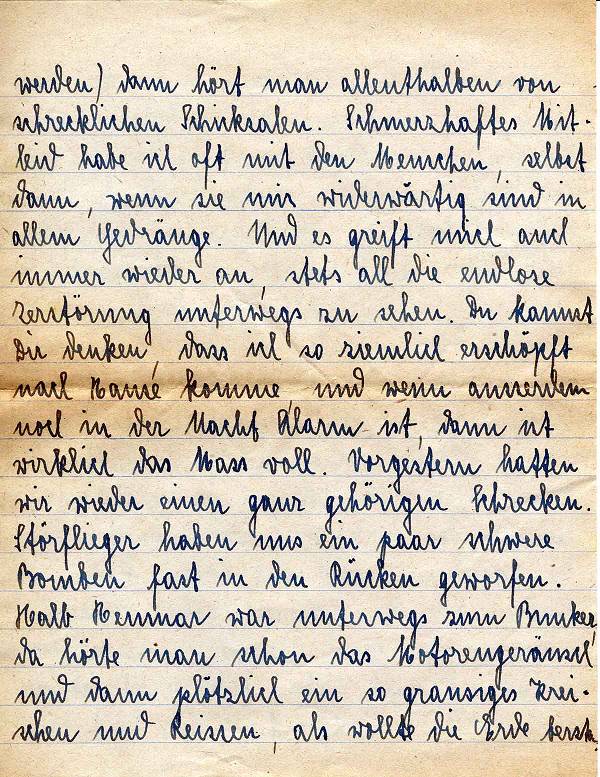 werden) dann hört man allenthalben von
schrecklichen Schicksalen. Schmerzhaftes Mit-
leid habe ich oft mit den Menschen, selbst
dann, wenn sie mir widerwärtig sind in
allem Gedränge. Und es greift mich auch
immer wieder an, stets all die endlose
Zerstörung unterwegs zu sehen. Du kannst
Dir denken, dass ich so ziemlich erschöpft
nach Hause komme, und wenn ausserdem
noch in der Nacht Alarm ist, dann ist
wirklich das Mass voll. Vorgestern hatten
wir wieder einen ganz gehörigen Schrecken.
Störflieger haben uns ein paar schwere
Bomben fast in den Rücken geworfen.
Halb war unterwegs zum Bunker,
da hörte man schon das Motorengeräusch
und dann plötzlich ein so grausiges Krei-
schen und Reissen, als wollte die Erde berst.